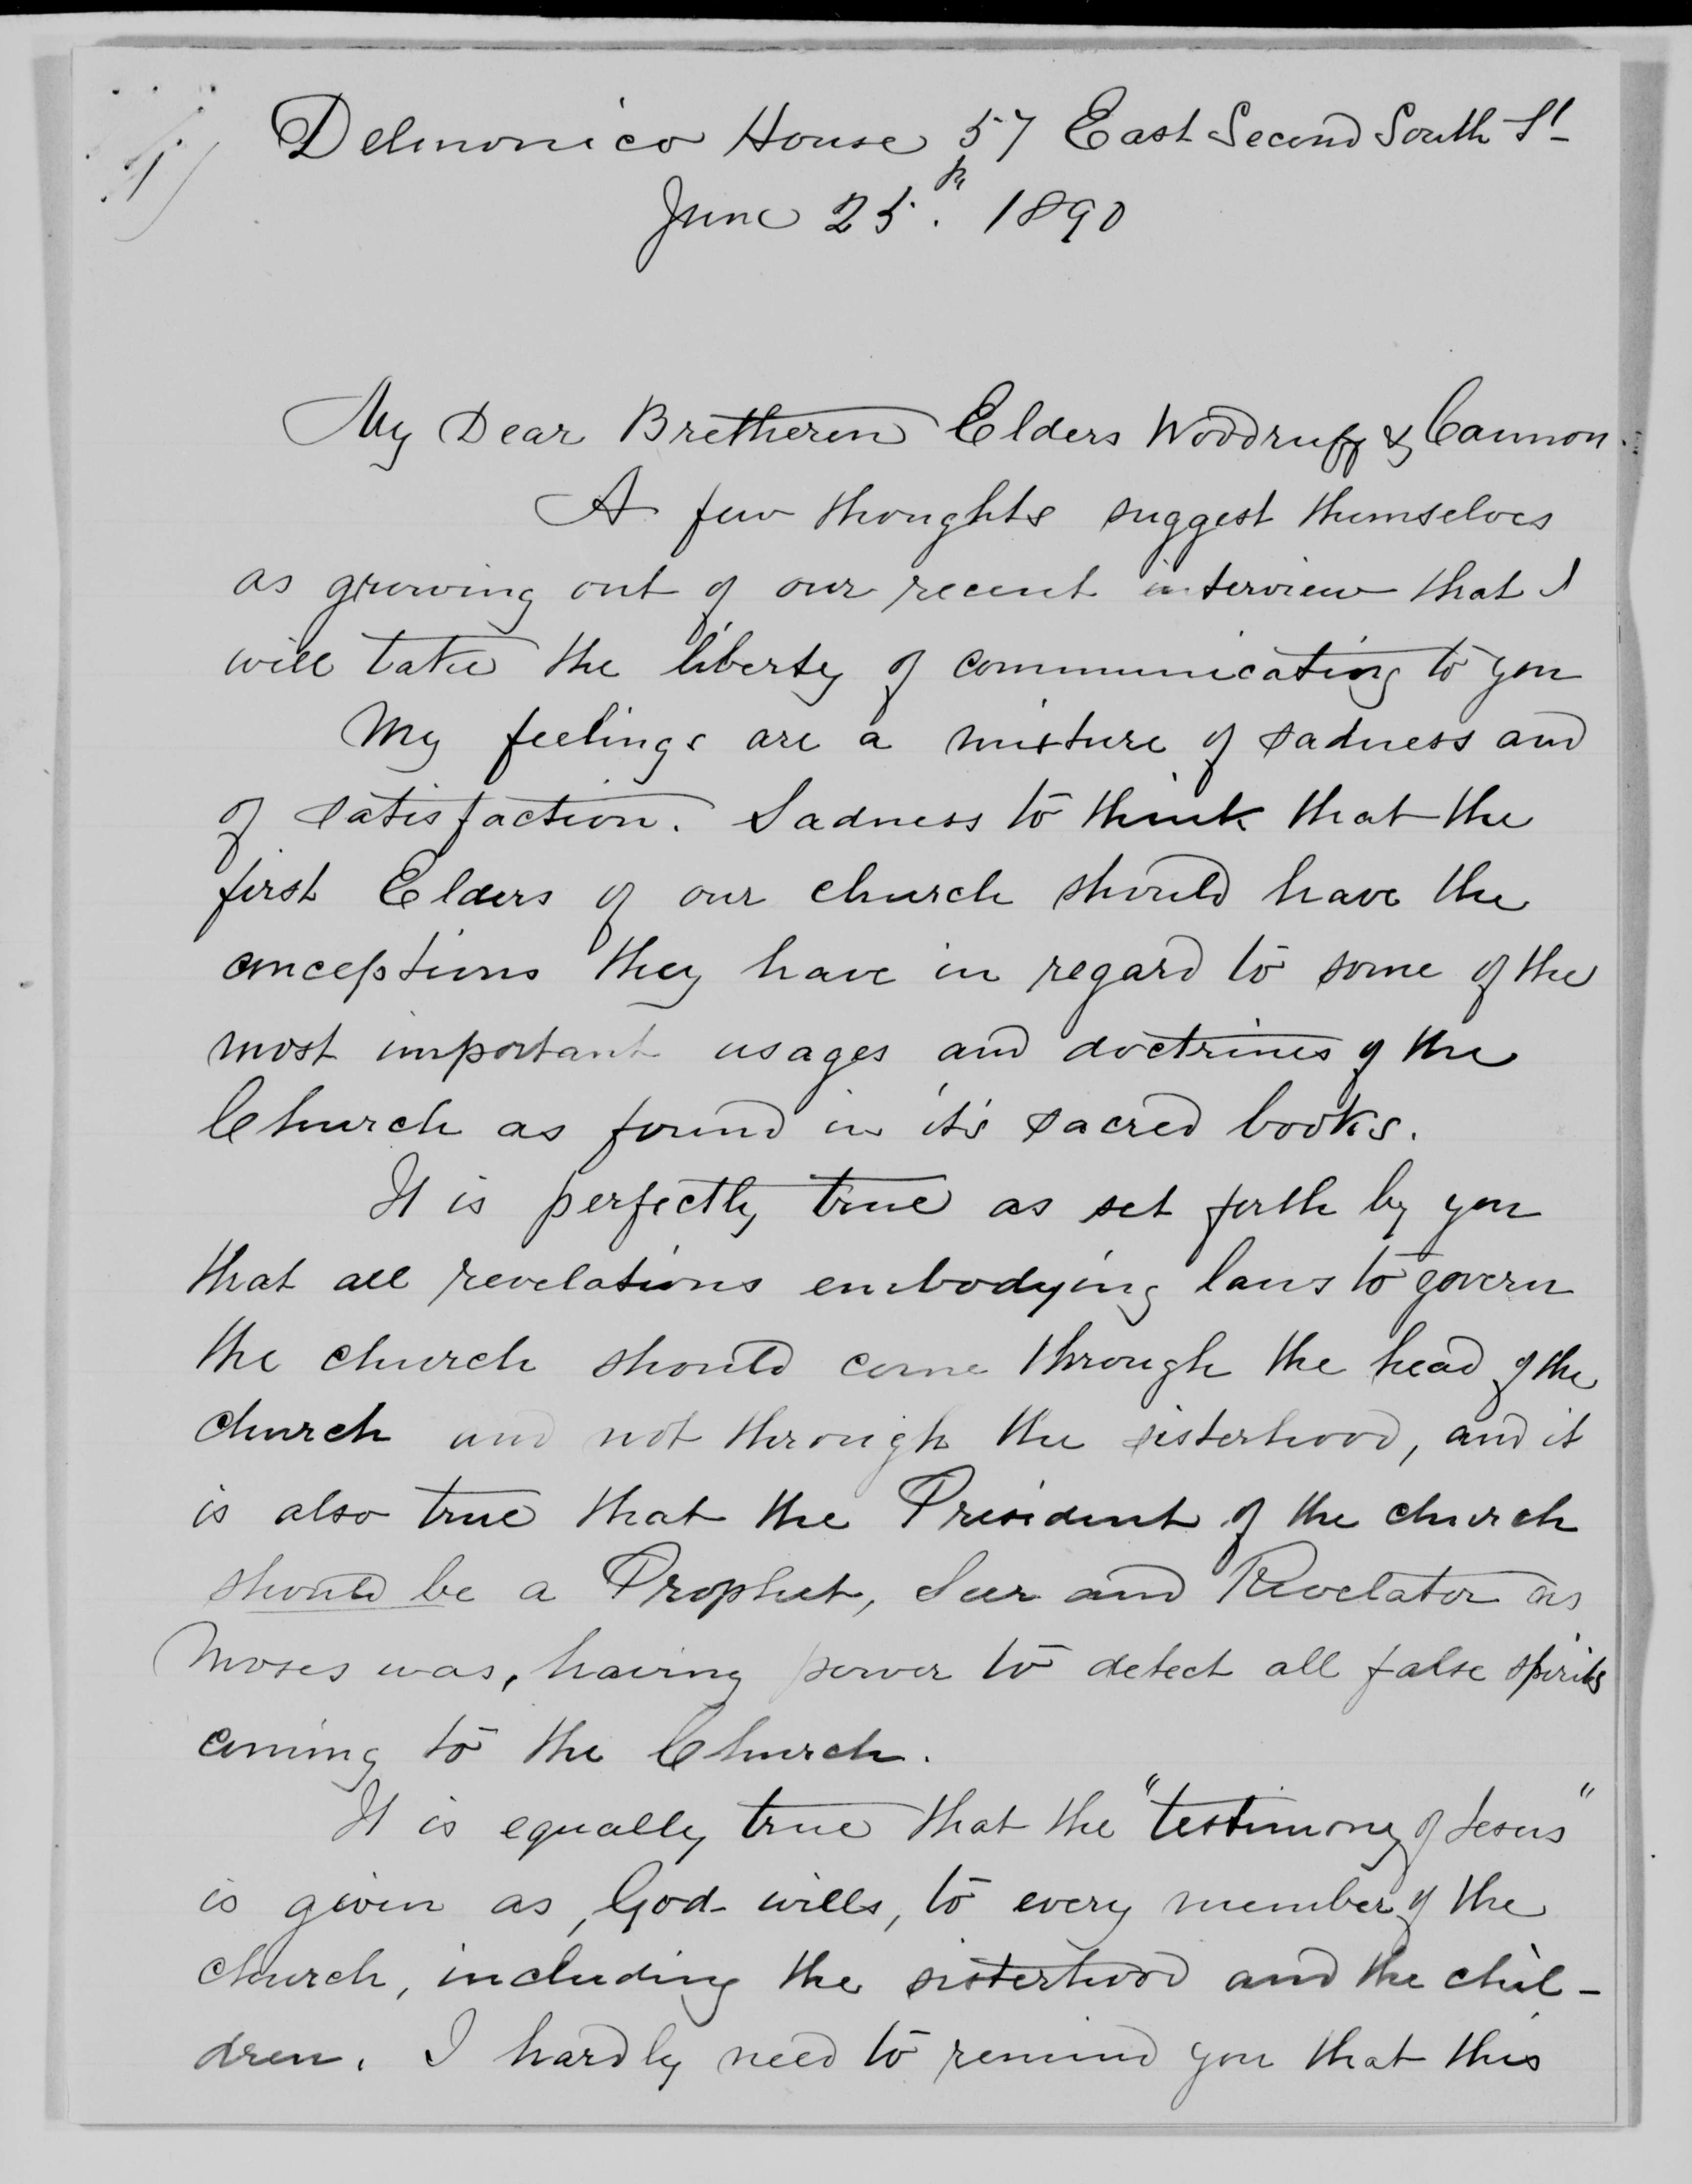 1)
Delmonico House 57 East Second South St
June 25th. 1890
My Dear Bretheren Elders Woodruff & Cannon.
A few thoughts suggest themselves
as growing out of our recent interview that I
will take the liberty of communicating to you
My feelings are a mixture of sadness and
of satisfaction. Sadness to think that the
first Elders of our church should have the
conceptions they have in regard to some of the
most important usages and doctrines of the
Church as found in it's sacred books.
It is perfectly true as set forth by you
that all revelations embodying laws to govern
the church should come through the head of the
church and not through the sisterhood, and it
is also true that the President of the church
should be a Prophet, Seer and Revelator as
Moses was, having power to detect all false spirits
coming to the Church.
It is equally true that the "testimony of Jesus"
is given as, God wills, to every member of the
church, including the sisterhood and the chil-
dren. I hardly need to remind you that this